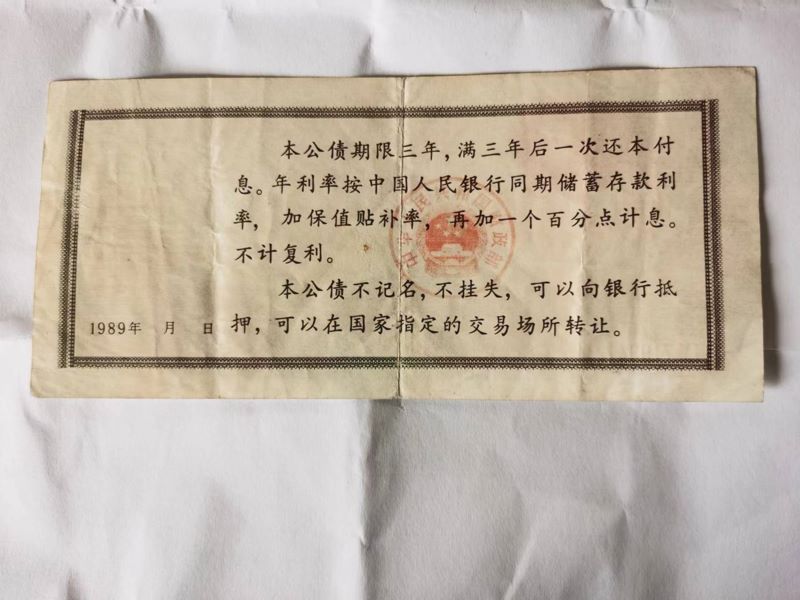 本公债期限三年，满三年后一次还本付
息。年利率按中国人民银行同期储蓄存款利
率，加保值贴补率，再加一个百分点计息。
不计复利。
本公债不记名，不挂失，可以向银行抵
押，可以在国家指定的交易场所转让。
1989年 月 日